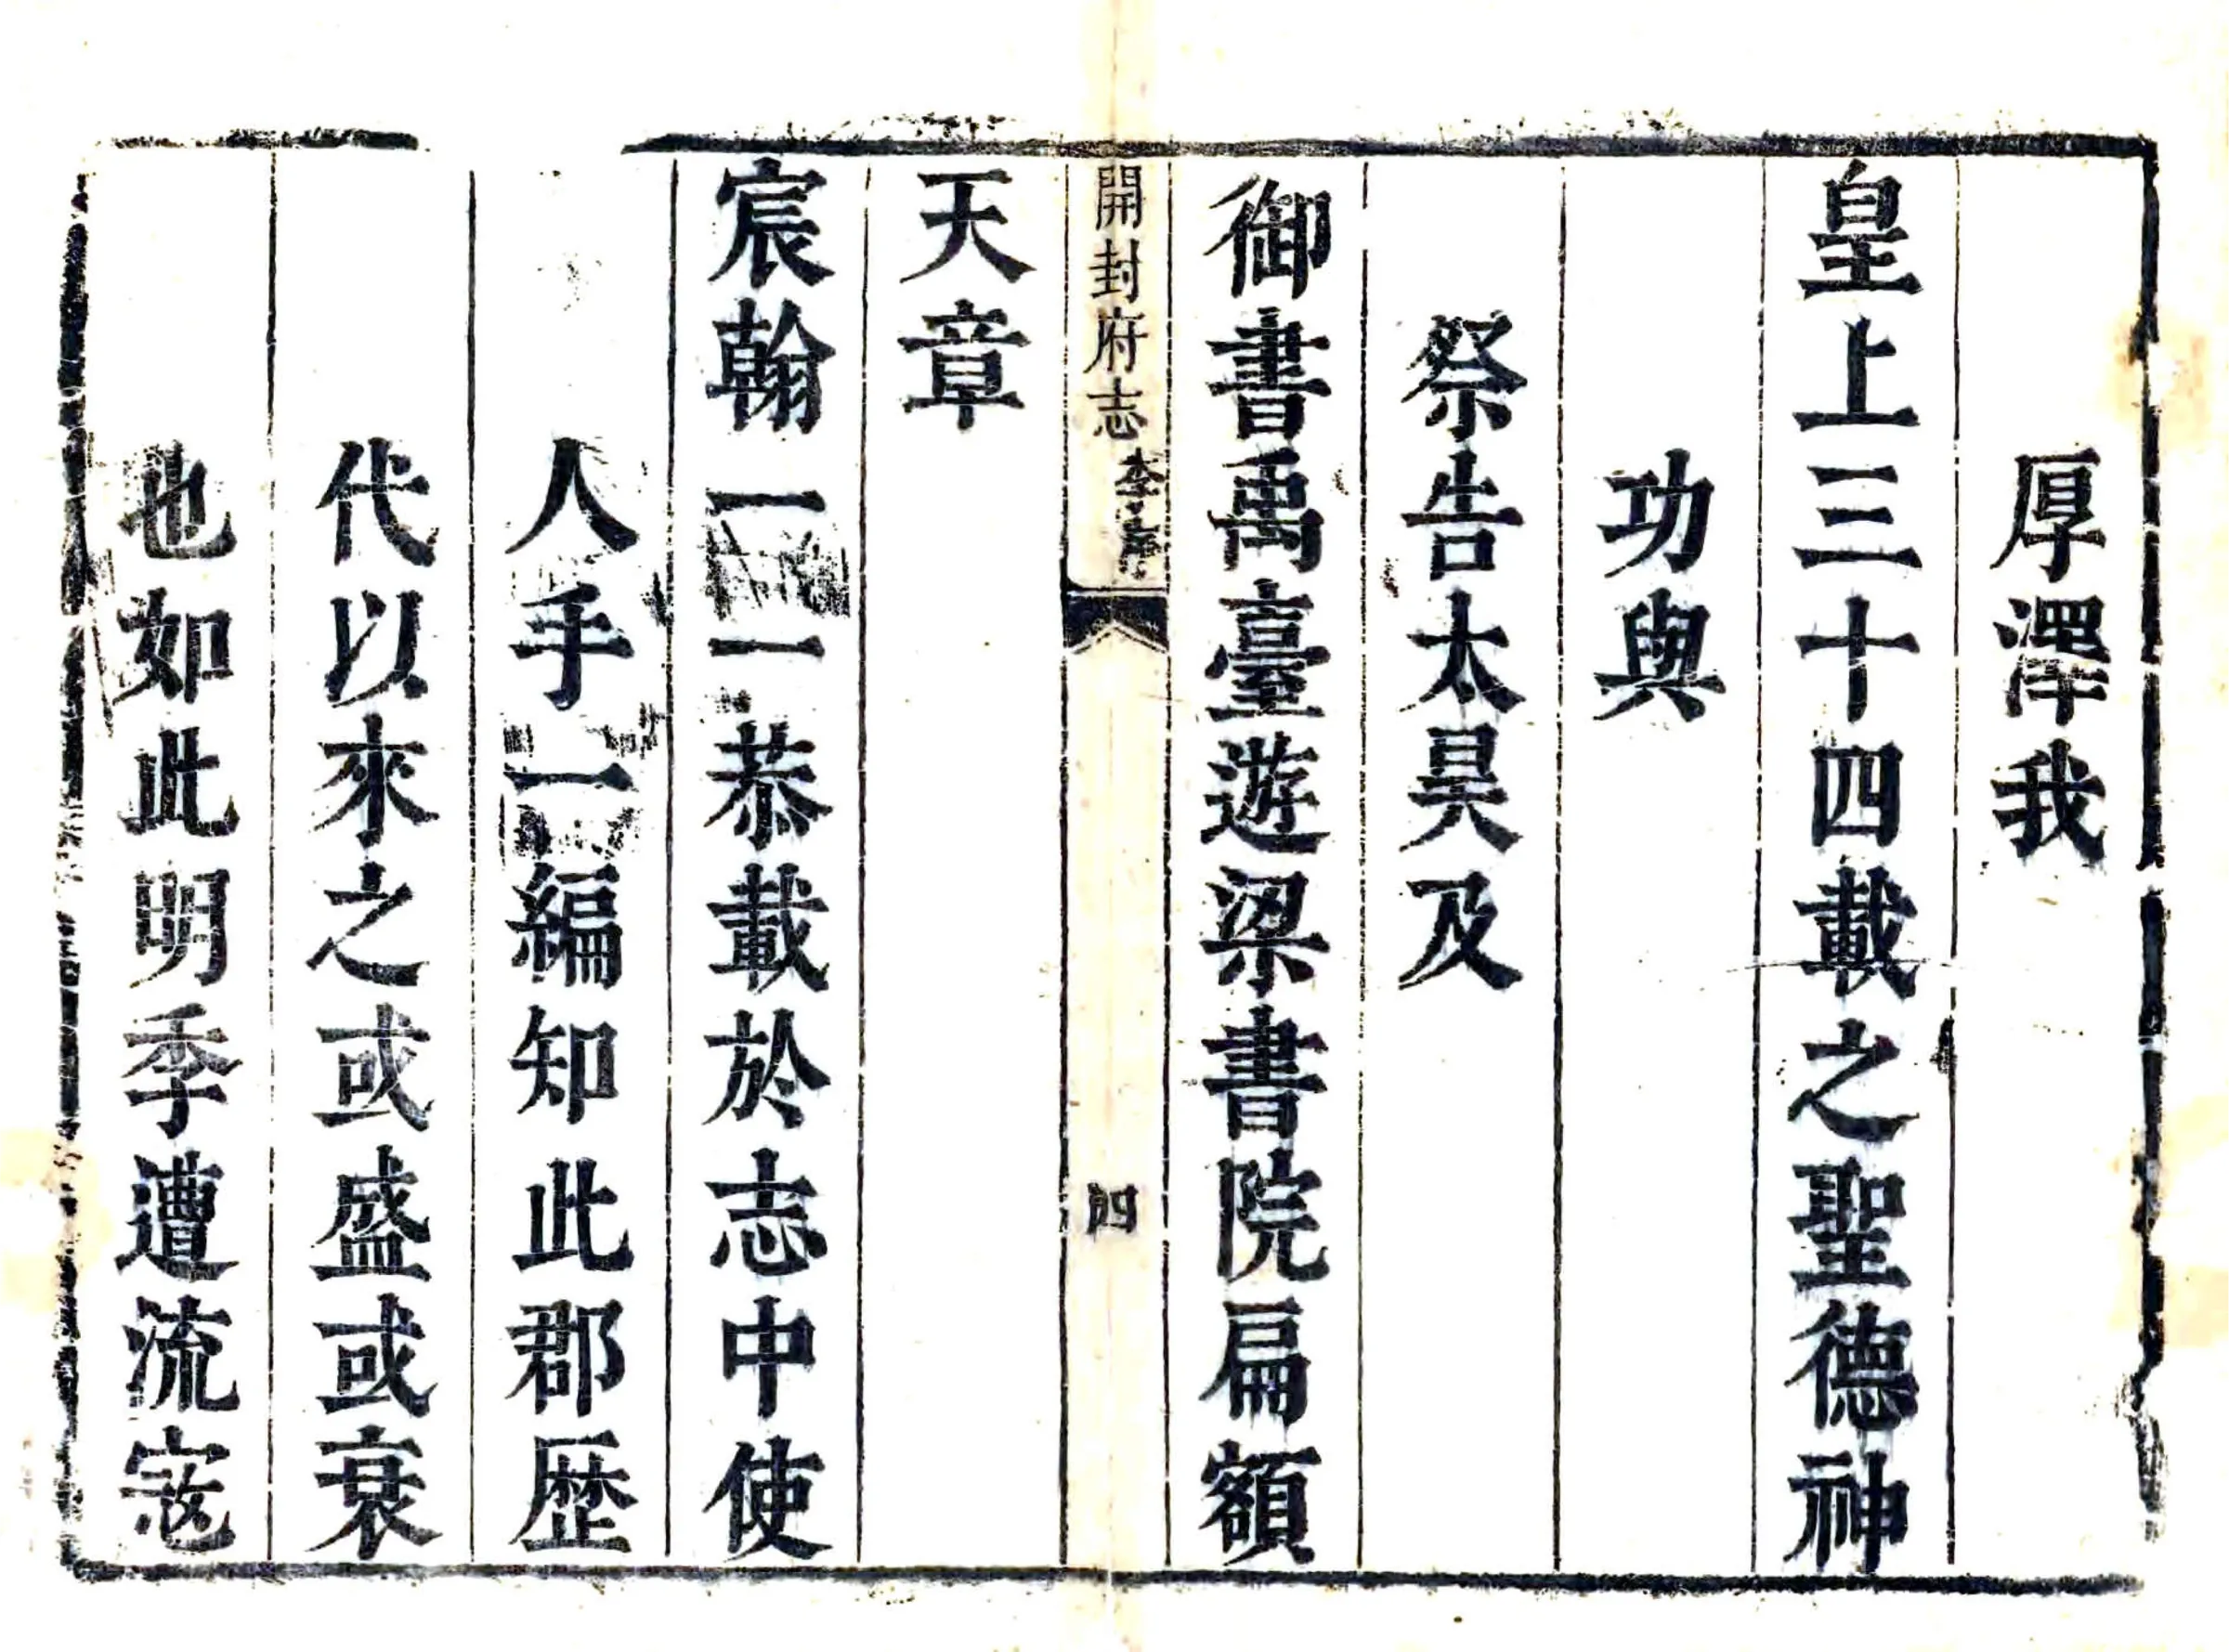 厚澤我
皇上三十四載之聖德神
功與
祭告太昊及
御書禹臺遊梁書院扁額
開封府志
四
天章
宸翰一一恭載於志中使
人手一編知此郡歷
代以來之或盛或衰
也如此明季遭流寇